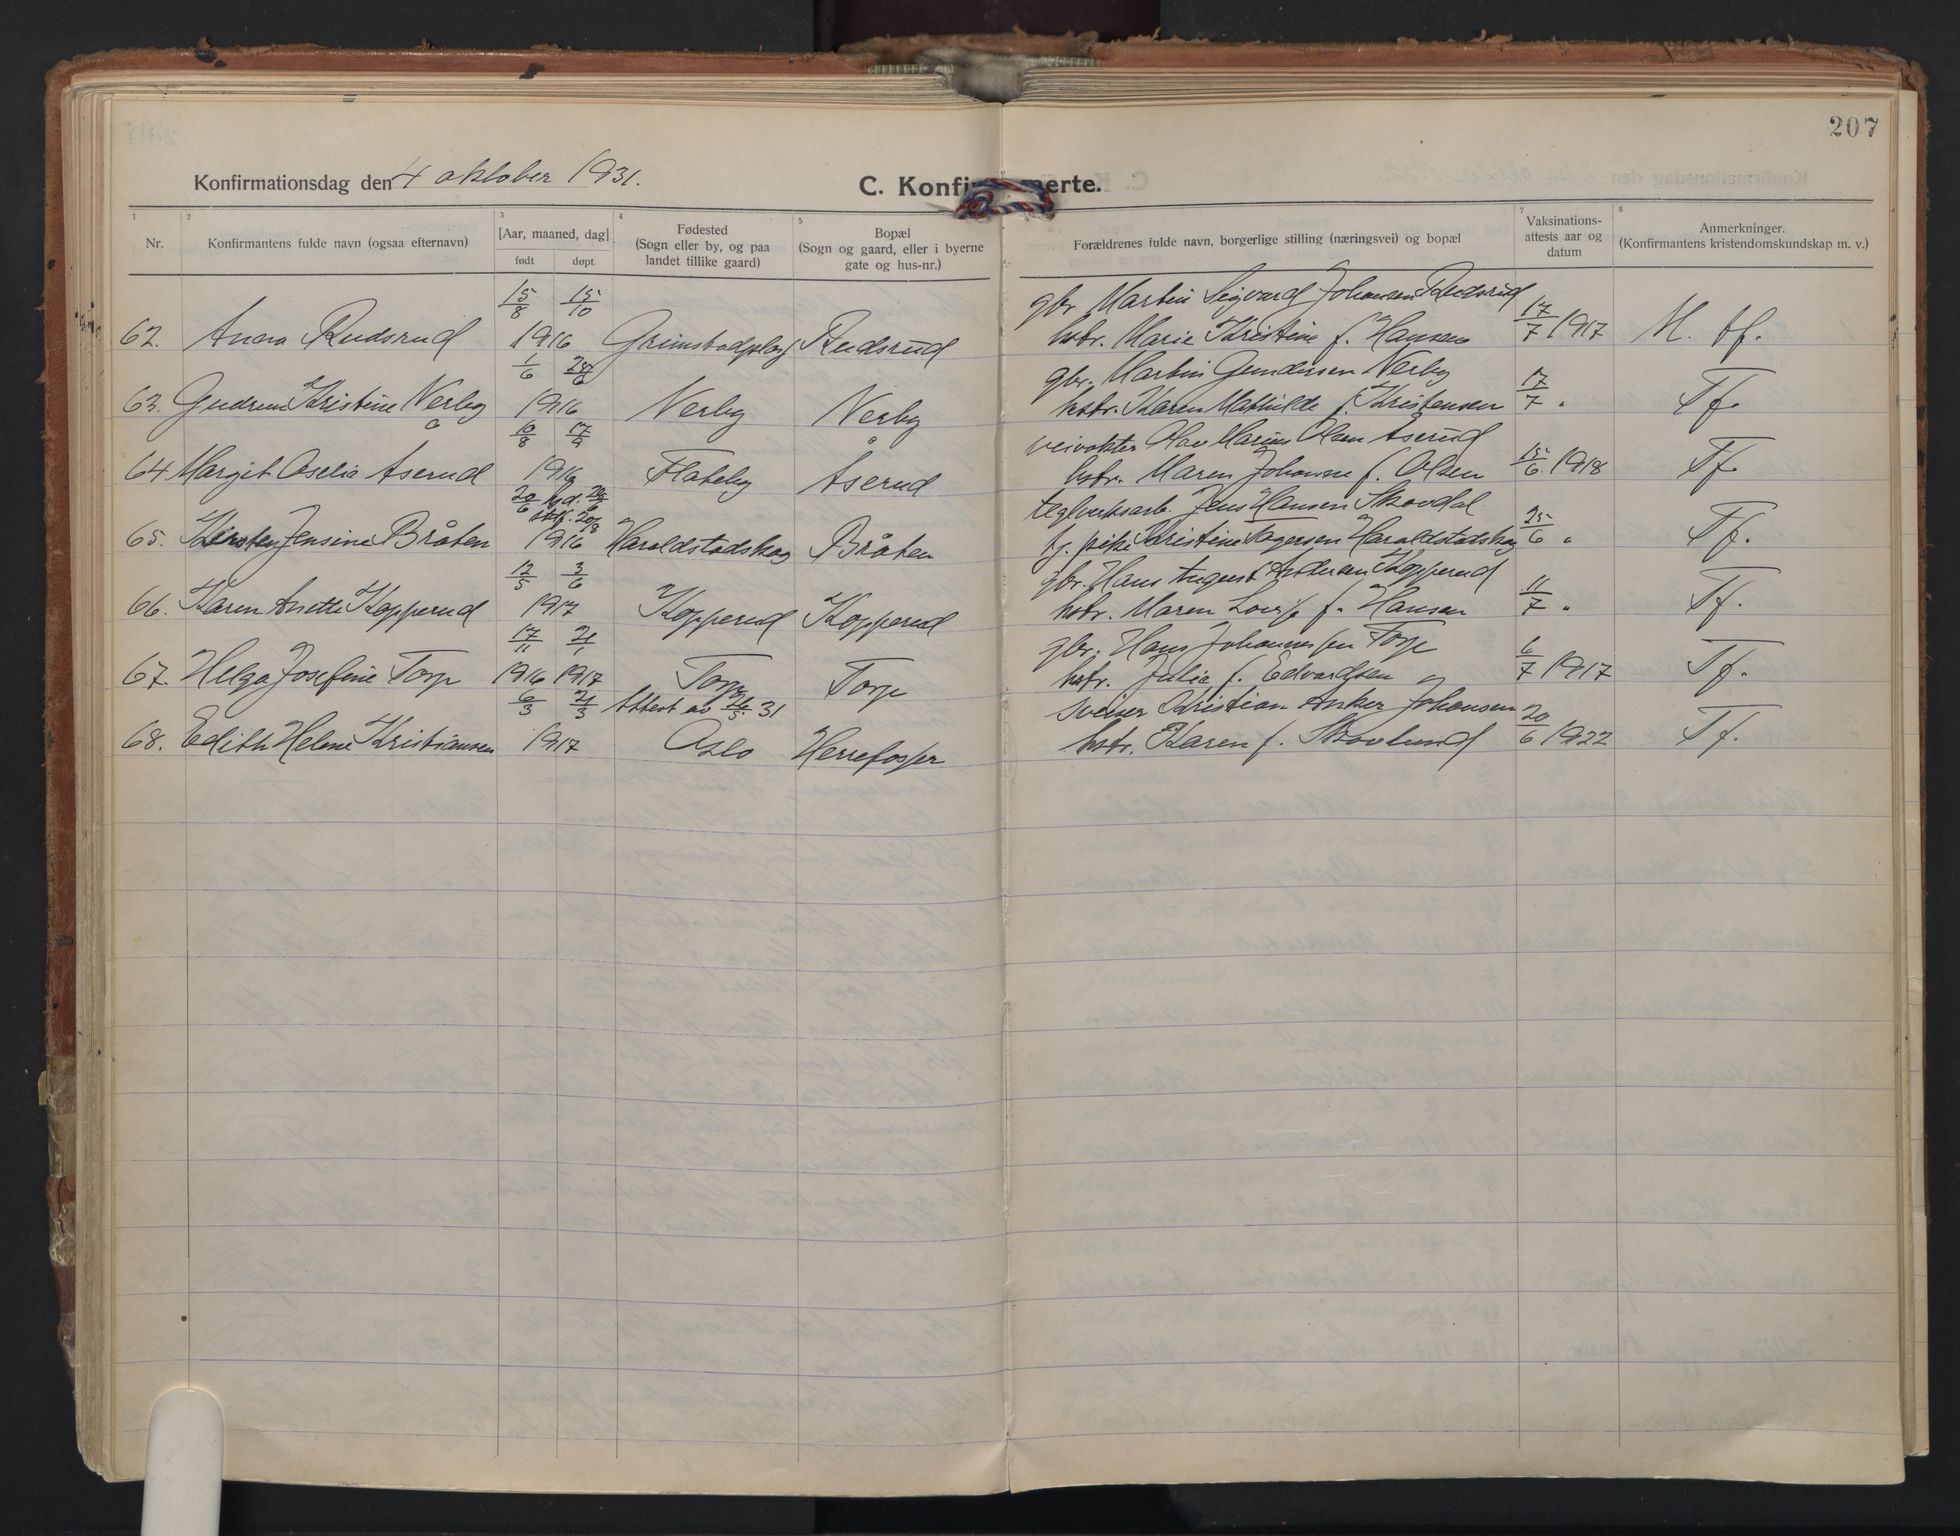 207
Konfirmationsdag den 4 oktober 1931.
C. Konfir merte.
1 2 3 4 5 7 8
Nr.
Konfirmantens fulde navn (ogsaa efternavn)
[Aar, maaned, dag]
født døpt
Fødested
(Sogn eller by, og paa
landet tillike gaard)
Bopæl
(Sogn og gaard, eller i byerne
gate og hus-nr.)
Forældrenes fulde navn, borgerlige stilling (næringsvei) og bopæl
Vaksinations-
attests aar og
datum
Anmerkninger.
(Konfirmantens kristendomskundskap m. v.)
15/8 15/10 gbr. Martin Sigvard Johansen Rudsrud
62. Anna Rudsrud 1916 Grimstadplas Rudsrud hstr. Marie Kristine f. Hansen 17/7 1917 M. tf.
1/6 28/6 gbr. Martin Gundersen Nerby
63. Gudrun Kristine Nerby 1916 Nerby Nerby hstr. Karen Mathilde f. Kristensen 17/7 " Tf.
6/8 17/9 veivokter Olav Marius Olsen Åserud
64 Margit Oselia Åserud 1916 Flateby Åserud hstr. Maren Johanne f. Olsen 15/6 1918 Tf.
20/6 hd. 20/6 teglverksarb. Jens Hansen Skovdal
stdf. 20/8
65. Kirsten Jensine Bråten 1916 Haraldstadskog Bråten fg. pike Kristine Torgersen Haraldstadskog 25/6 " Tf.
12/5 3/6 gbr. Hans August Andersen Kopperud
66. Karen Anette Kopperud 1917 Kopperud Kopperud hstr. Maren Lovise f. Hansen 11/7 " Tf.
17/11 21/1 gbr. Hans Johannessen Torp
67. Helga Josefine Torp 1916 1917 Torp Torp hstr. Julie f. Edvardsen 6/7 1917 Tf.
6/3 21/3 Attest av 26/5. 31 sveiser Kristian Anker Johansen og
68. Edith Helene Kristiansen 1917 Oslo Herrefosser hstr. Karen f. Skovlund 20/6 1922 Tf.